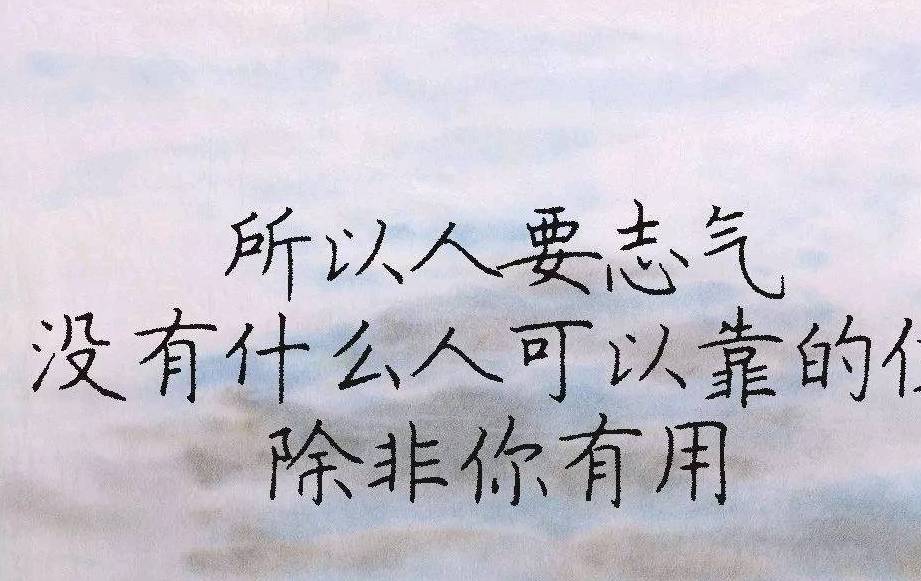 所以人要志气
没有什么人可以靠的
除非你有用